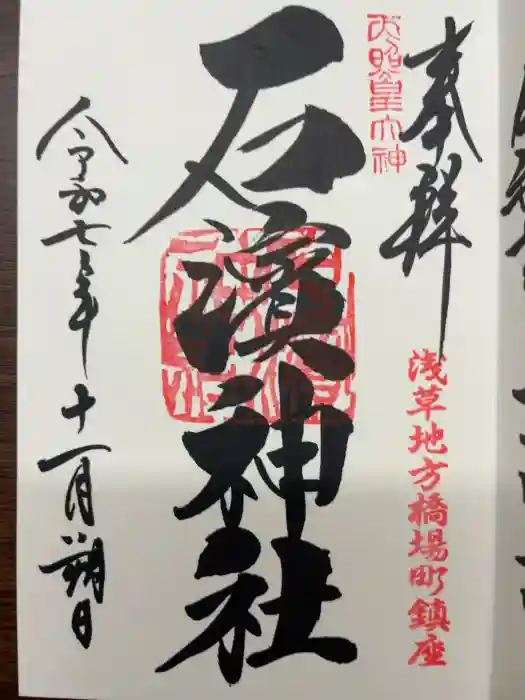 奉拜
天照皇大神
浅草地方橋場町鎮座
石濱神社
令和七年十一月朔日